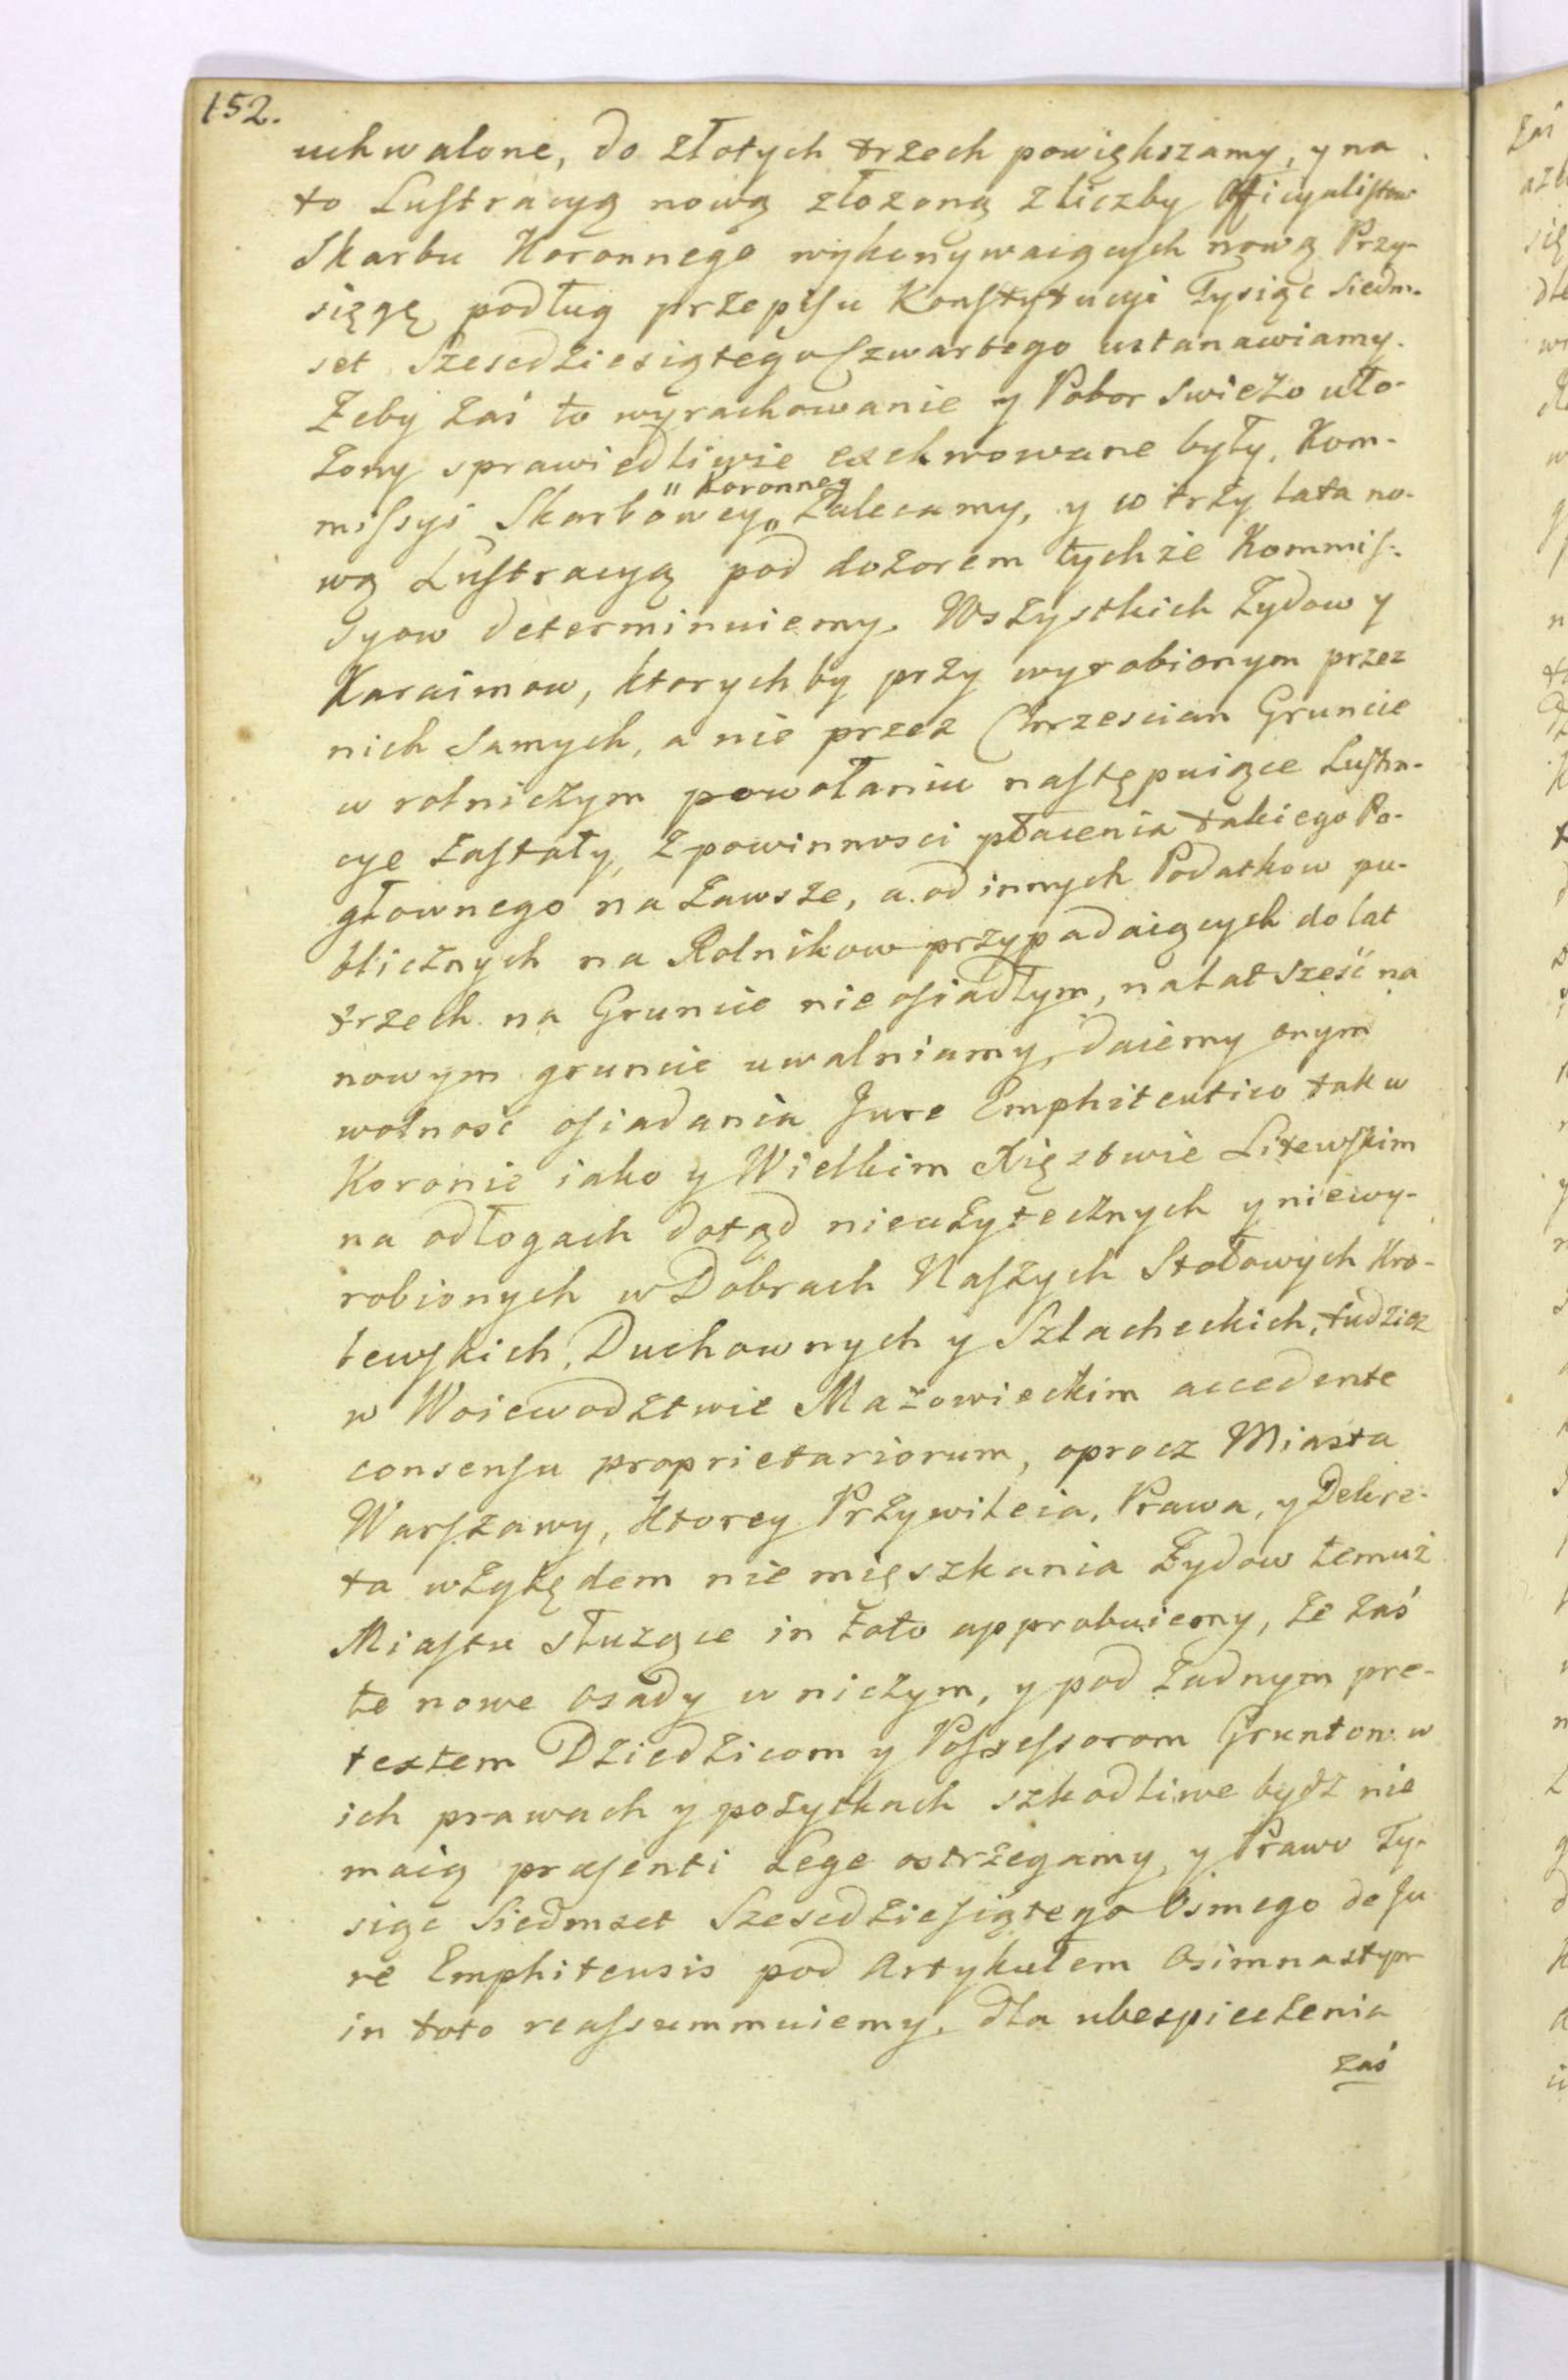 152.
uchwalone, do złotych trzech powiększamy, y na
to Lustracyą nową złożoną z liczby Officyalistow
Skarbu Koronnego wykonywaiących nową Przy-
sięgę podług przepisu Konstytucyi Tysiąc Siedm-
set Szescdziesiątego Czwartego ustanawiamy.
Żeby zaś to wyrachowanie y Pobor swieżo uło-
żony sprawiedliwie exekwowane były, Kom-
" Koronney
missyi Skarbowey „ Zalecamy, y w trzy lata no-
wą Lustracyą pod dozorem tychże Kommis-
syow determinuiemy. Wszystkich Żydow y
Karaimow, ktorych by przy wyrobionym przez
nich samych, a nie przez Chrzescian Gruncie
w rolniczym powołaniu następuiące Lustra-
cye zastały, z powinnosci płacenia takiego Po-
głownego na zawsze, a od innych Podatkow pu-
blicznych na Rolnikow przypadaiących do lat
trzech na Gruncie nie osiadłym, na lat sześć na
nowym gruncie uwalniamy, daiemy onym
wolność osiadania Jure Emphiteutico tak w
Koronie iako y Wielkim Xięstwie Litewskim
na odłogach dotąd nieużytecznych y niewy-
robionych w Dobrach Naszych Stołowych Kro-
lewskich, Duchownych y Szlacheckich, tudziesz
w Woiewodztwie Mazowieckim accedente
consensu proprietariorum, oprocz Miasta
Warszawy, Ktorey Przywileia, Prawa, y Dekre-
ta wzgłędem nie mięszkania Żydow temuż
Miastu służące in toto approbuiemy, że zaś
te nowe osady w niczym, y pod żadnym pre-
textem Dziedzicom y Possessorom Gruntow w
ich prawach y pożytkach szkodliwe bydź nie
maią præsenti Lege ostrzegamy, y Prawo Ty-
siąc Siedmset Szescdziesiątego Osmego de Ju
re Emphiteusis pod Artykułem Osimnastym
in toto reassummuiemy. Dla ubezpieczenia
zaś